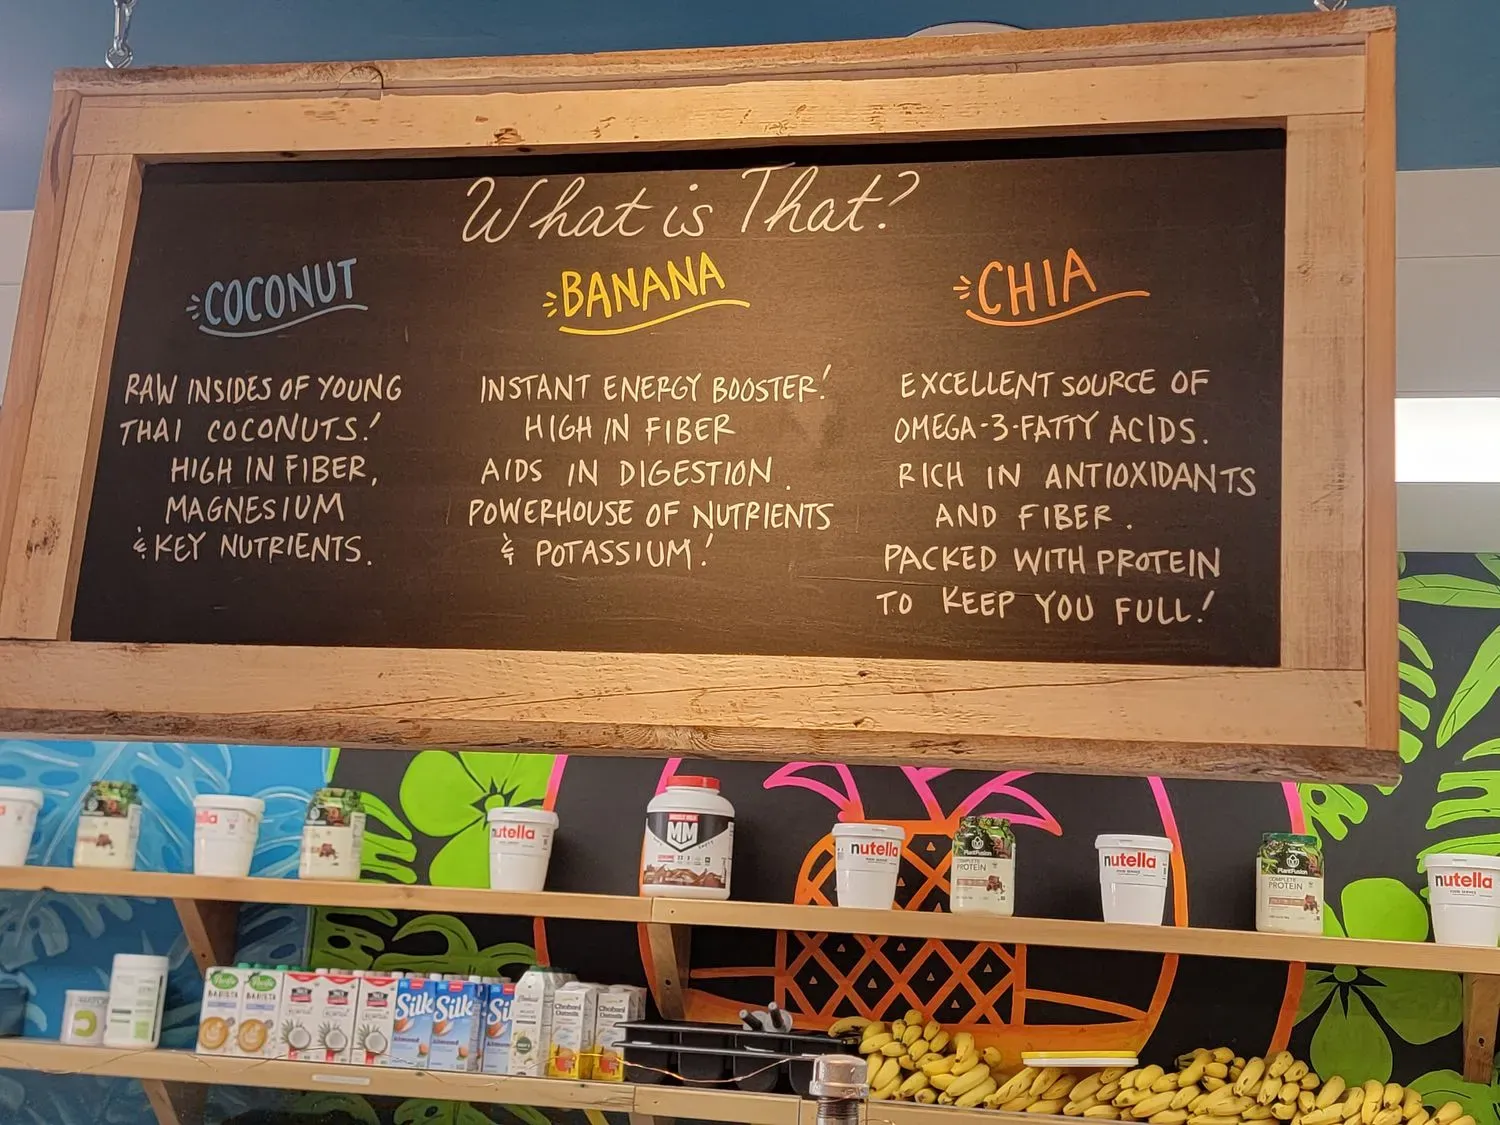 What is That?
COCONUT
RAW INSIDES OF YOUNG
THAI COCONUTS!
HIGH IN FIBER,
MAGNESIUM
& KEY NUTRIENTS.
BANANA
INSTANT ENERGY BOOSTER!
HIGH IN FIBER
AIDS IN DIGESTION.
POWERHOUSE OF NUTRIENTS
& POTASSIUM!
CHIA
EXCELLENT SOURCE OF
OMEGA-3-FATTY ACIDS.
RICH IN ANTIOXIDANTS
AND FIBER.
PACKED WITH PROTEIN
TO KEEP YOU FULL!
nutella
MM
nutella
PlantFusion
COMPLETE
PROTEIN
nutella
PlantFusion
COMPLETE
PROTEIN
nutella
BARISTA
BARISTA
Silk
Almond
Silk
Almond
Silk
Chobani
Oatmilk
Chobani
Oatmilk